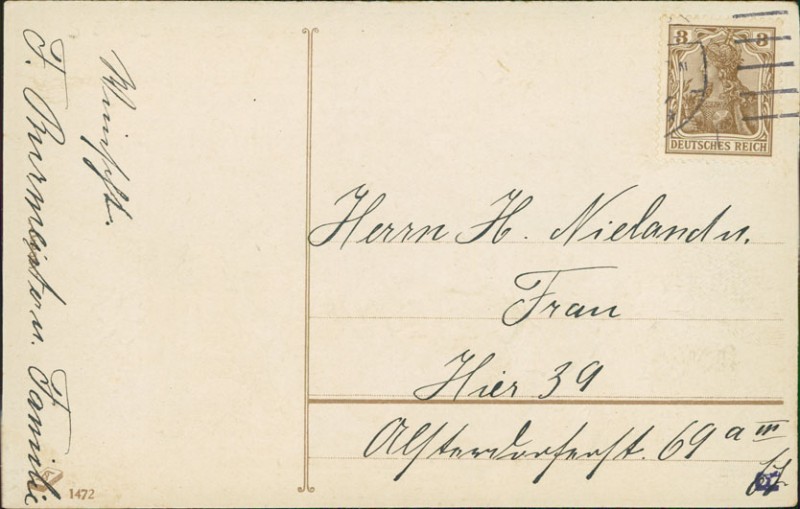 Wünscht.
F. Burmeister u. Familie
1472
3 3
DEUTSCHES REICH
Herrn H. Nieland u.
Frau
Hier 39
Alsterdorferst. 69 a III